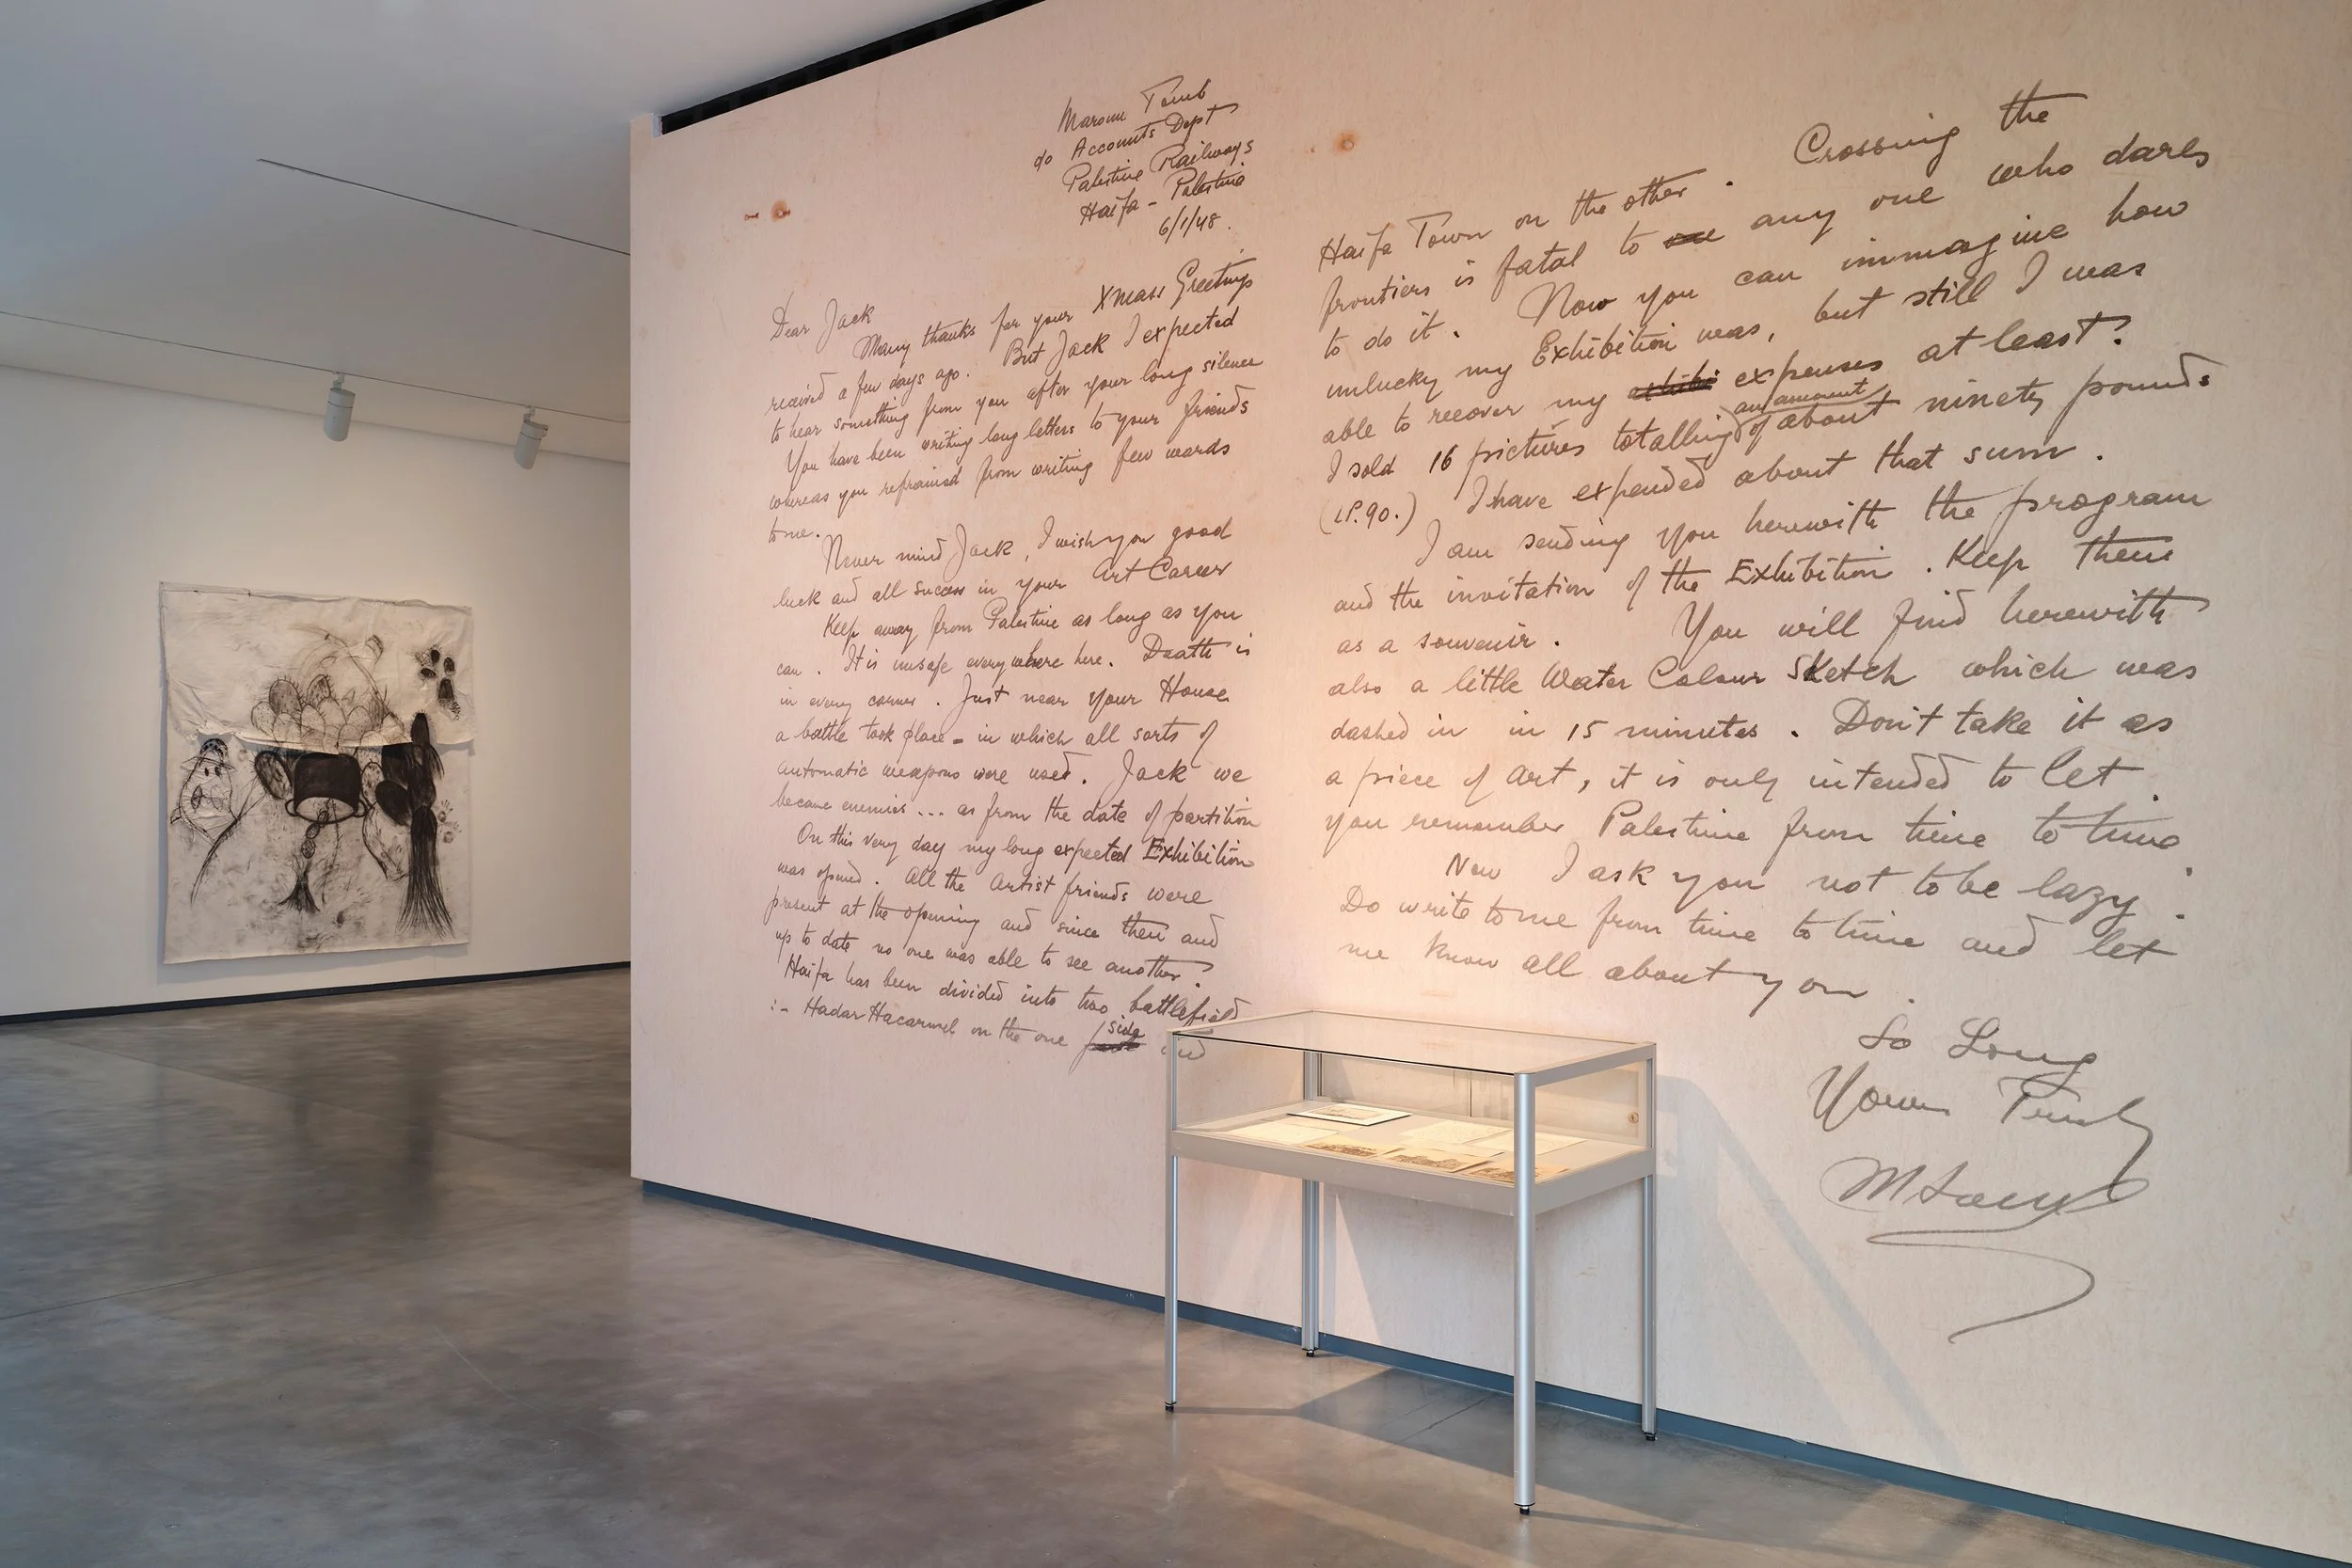 Maroun Tomb
c/o Accounts Dept
Palestine Railways
Haifa - Palestine
6/1/48.
Dear Jack
Many thanks for your Xmass Greetings
received a few days ago. But Jack I expected
to hear something from you after your long silence
You have been writing long letters to your friends
whereas you refrained from writing few words
to me.
Never mind Jack, I wish you good
luck and all success in your Art Career
Keep away from Palestine as long as you
can. It is unsafe everywhere here. Death is
in every corner. Just near your House
a battle took place - in which all sorts of
automatic weapons were used. Jack we
became enemies... as from the date of partition
On this very day my long expected Exhibition
was opened. All the Artist friends were
present at the opening and since then and
up to date no one was able to see another.
Haifa has been divided into two battlefield
:- Hadar Hacarmel on the one side and
Haifa Town on the other. Crossing the
frontiers is fatal to any one who dares
to do it. Now you can immagine how
unlucky my Exhibition was, but still I was
able to recover my expenses at least.
I sold 16 pictures totalling an amount of about ninety pounds
(LP.90.) I have expended about that sum.
I am sending you herewith the program
and the invitation of the Exhibition. Keep them
as a souvenir. You will find herewith
also a little Water Colour Sketch which was
dashed in in 15 minutes. Don't take it as
a piece of Art, it is only intended to let
you remember Palestine from time to time.
Now I ask you not to be lazy.
Do write to me from time to time and let
me know all about you.
So Long
Yours Truly